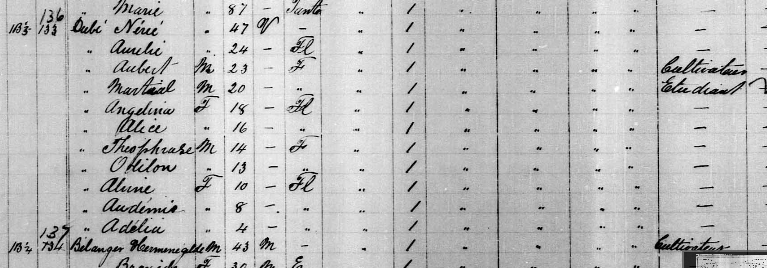 " Marie " 87 - Tante " 1 " " " " -
136
1B½ 133 Dubé Nérée " 47 V - " 1 " " " " -
" Aurelie " 24 - Fl " 1 " " " " -
" Aubert M 23 - F " 1 " " " " Cultivateur
" Martial M 20 - " " 1 " " " " Etudiant
" Angelina F 18 - Fl " 1 " " " " -
" Alice " 16 - " " 1 " " " " -
" Theophrase M 14 - F " 1 " " " " -
" Odilon " 13 - " " 1 " " " " -
" Alvine F 10 - Fl " 1 " " " " -
" Audémis " 8 - " " 1 " " " " -
" Adélia " 4 - " " 1 " " " " -
137
1B¼ 134 Bélanger Hermenegilde M 43 M - " 1 " " " " Cultivateur
F 30 M E " 1 " " " " -